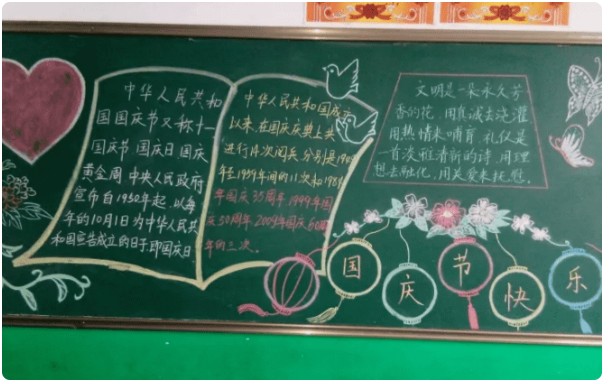 中华人民共和
国国庆节又称十一
国庆节 国庆日 国庆
黄金周 中央人民政府
宣布自1950年起.以每
年的10月1日为中华人民共
和国宣告成立的日子即国庆日
中华人民共和国成立
以来.在国庆庆典上共
进行14次阅兵 分别是1949
年至1959年间的11次和1984
年国庆35周年.1999年国
庆50周年.2009年国庆60周
年的三次.
文明是一朵永久芳
香的花.用真诚去浇灌
用热情来哺育.礼仪是
一首 清新的诗.用理
想去融化.用关爱来抚慰.
国庆节快乐